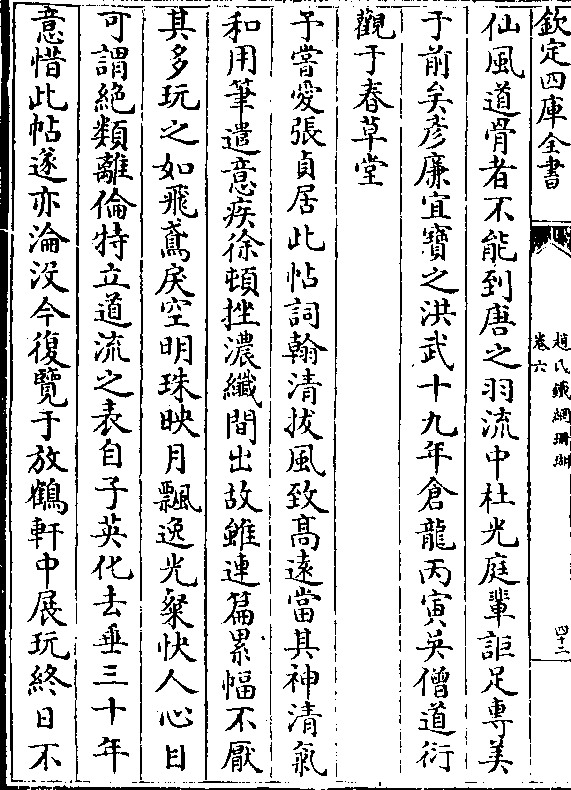 欽定四庫全書
趙氏鐵網珊瑚
卷六
四十二
仙風道骨者不能到唐之羽流中杜光庭輩詎足專美
于前矣彦廉宜寶之洪武十九年倉龍丙寅吳僧道衍
觀于春草堂
予嘗愛張貞居此帖詞翰清拔風致髙逺當其神清氣
和用筆遣意疾徐頓挫濃纖間出故雖連篇累幅不厭
其多玩之如飛鳶戾空明珠映月飄逸光粲快人心目
可謂絶類離倫特立道流之表自子英化去垂三十年
意惜此帖遂亦淪没今復覽于放鶴軒中展玩終日不